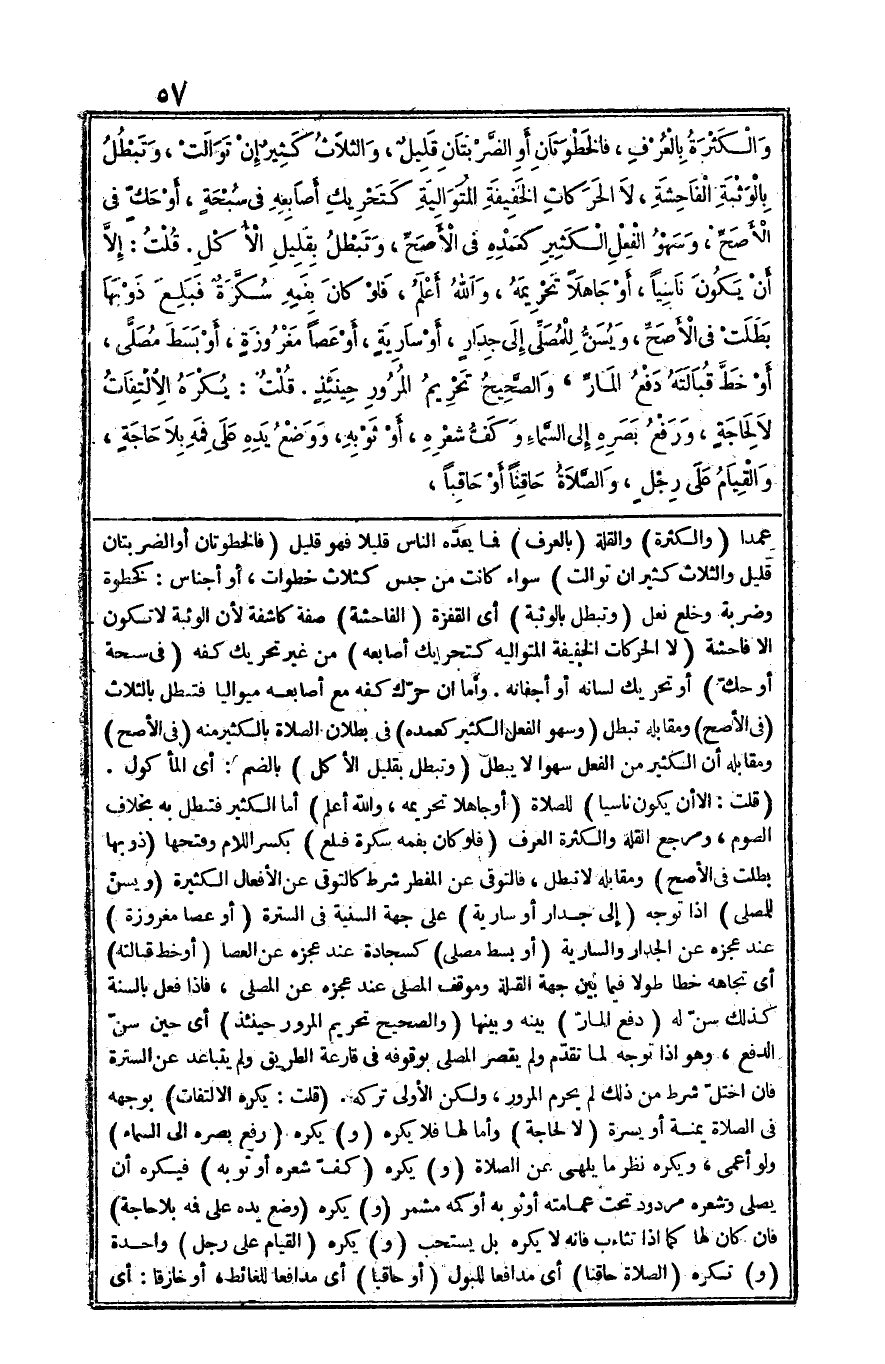 ٥٧
وَالْكَثْرَةُ بِالْعُرْفِ ، فَالْخَطْوَتَانِ أَوِ الضَّرْبَتَانِ قَلِيلٌ ، وَالثَّلاَثُ كَثِيرٌ إِنْ تَوَالَتْ ، وَتَبْطُلُ
بِالْوَثْبَةِ الْفَاحِشَةِ ، لاَ الحَرَكَاتِ الخَفِيفَةِ المُتَوَالِيَةِ كَتَحْرِيكِ أَصَابِعِهِ فِى سُبْحَةٍ ، أَوْ حَكٍّ فِى
الْأَصَحِّ ، وَسَهْوُ الْفِعْلِ الْكَثِيرِ كَعَمْدِهِ فِى الْأَصَحِّ ، وَتَبْطُلُ بِقَلِيلِ الْأُكْلِ . قُلْتُ : إِلاَّ
أَنْ يَكُونَ نَاسِياً ، أَوْ جَاهِلاً تَحْرِيمَهُ ، وَاللهُ أَعْلَمُ ، فَلَوْ كَانَ بِفَمِهِ سُكَّرَةٌ فَبَلِعَ ذَوْبَهَا
بَطَلَتْ فِى الْأَصَحِّ ، وَيُسَنُّ لِلْمُصَلِّى إِلَى جِدَارٍ ، أَوْ سَارِيَةٍ ، أَوْ عَصاً مَغْرُوزَةٍ ، أَوْ بَسَطَ مُصَلًّى ،
أَوْ خَطَّ قُبَالَتَهُ دَفْعُ المَارِّ ، وَالصَّحِيحُ تَحْرِيمُ المُرُورِ حِينَئِذٍ . قُلْتُ : يُكْرَهُ الِالْتِفَاتُ
لاَ لِحَاجَةٍ ، وَرَفْعُ بَصَرِهِ إِلَى السَّمَاءِ وَكَفُّ شَعْرِهِ ، أَوْ ثَوْبِهِ، وَوَضْعُ يَدِهِ عَلَى فَمِهِ بِلاَ حَاجَةٍ ،
وَالْقِيَامُ عَلَى رِجْلٍ ، وَالصَّلاَةُ حَاقِنًا أَوْ حَاقِباً ،
عمدا (والكثرة) والقلة (بالعرف) فما يعدّه الناس قليلا فهو قليل (فالخطوتان أوالضربتان
قليل والثلاث كثير ان توالت) سواء كانت من جنس كثلاث خطوات ، أو أجناس : كخطوة
وضربة وخلع نعل (وتبطل بالوثبة) أى القفزة (الفاحشة) صفة كاشفة لأن الوثبة لاتكون
الا فاحشة (لا الحركات الخفيفة المتواليه كتحرابك أصابعه) من غير تحريك كفه (فى سبحة
أو حكّ) أو تحريك لسانه أو أجفانه . وأما ان حرّك كفه مع أصابعه ميواليا فتبطل بالثلاث
(فى الأصح) ومقابله تبطل (وسهو الفعل الكثير كعمده) فى بطلان الصلاة بالكثير منه (فى الأصح)
ومقابله أن الكثير من الفعل سهوا لا يبطل (وتبطل بقليل الأكل) بالضم : أى المأكول .
(قلت : الاأن يكون ناسيا) للصلاة (أو جاهلا تحريمه ، والله أعلم) أما الكثير فتبطل به بخلاف
الصوم ، ومرجع القلة والكثرة العرف (فلو كان بفمه سكرة فبلع) بكسر اللام وفتحها (ذوبها
بطلت فى الأصح) ومقابله لاتبطل ، فالتوقى عن المفطر شرط كالتوقى عن الأفعال الكثيرة (ويسنّ
للمصلى) اذا توجه (إلى جدار أو سارية) على جهة السنية فى السترة (أو عصا مغروزة)
عند عجزه عن الجدار والسارية (أو بسط مصلى) كسجادة عند عجزه عن العصا (أو خط قبالته)
أى تجاهه خطا طولا فيما بين جهة القبلة وموقف المصلى عند عجزه عن المصلى ، فاذا فعل بالسنة
كذلك سنّ له (دفع المارّ) بينه وبينها (والصحيح تحريم المرور حينئذ) أى حين سنّ
الدفع ، وهو اذا توجه لما تقدّم ولم يقصر المصلى بوقوفه فى قارعة الطريق ولم يتباعد عن السترة
فان اختلّ شرط من ذلك لم يحرم المرور ، ولكن الأولى تركه . (قلت : يكره الالتفات) بوجهه
فى الصلاة يمنة أو يسرة (لا لحاجة) وأما لها فلا يكره (و) يكره (رفع بصره الى السماء)
ولو أعمى ، ويكره نظر ما يلهى عن الصلاة (و) يكره (كفّ شعره أو ثوبه) فيكره أن
يصلى وشعره مردود تحت عمامته أوثوبه أو كمه مشمر (و) يكره (وضع يده على فمه بلاحاجة)
فان كان لها كما اذا تثاءب فانه لا يكره بل يستحب (و) يكره (القيام على رجل) واحدة
(و) تكره (الصلاة حاقنا) أى مدافعا للبول (أو حاقبا) أى مدافعا للغائط، أو خازقا : أى